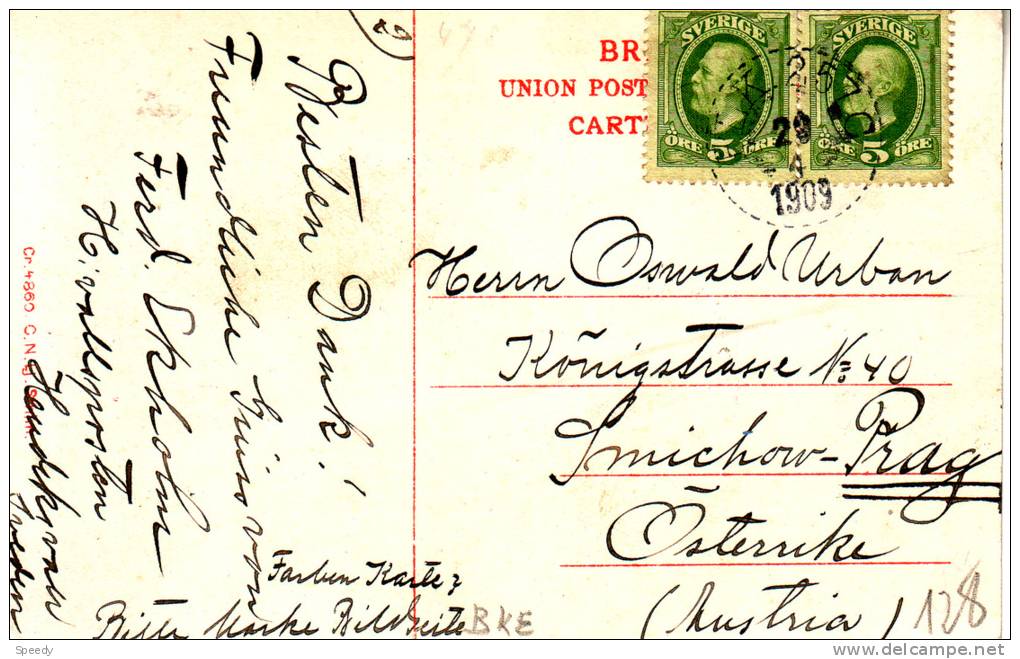 2)
Besten Dank!
Freundliche Grüss von
Ferd. Ekholm
H. vallsposten
Sweden
Farben Karte?
Bitte Marke Bildseite
Cr. 4860 C.N.
BR
UNION POST
CART
SVERIGE
SVERIGE
ÖRE 5 ÖRE
ÖRE 5 ÖRE
29
4
1909
Herrn Oswald Urban
Königstrasse No 40
Smichow-Prag
Österrike
(Austria)
128
BKE
Speedy
delcampe.net